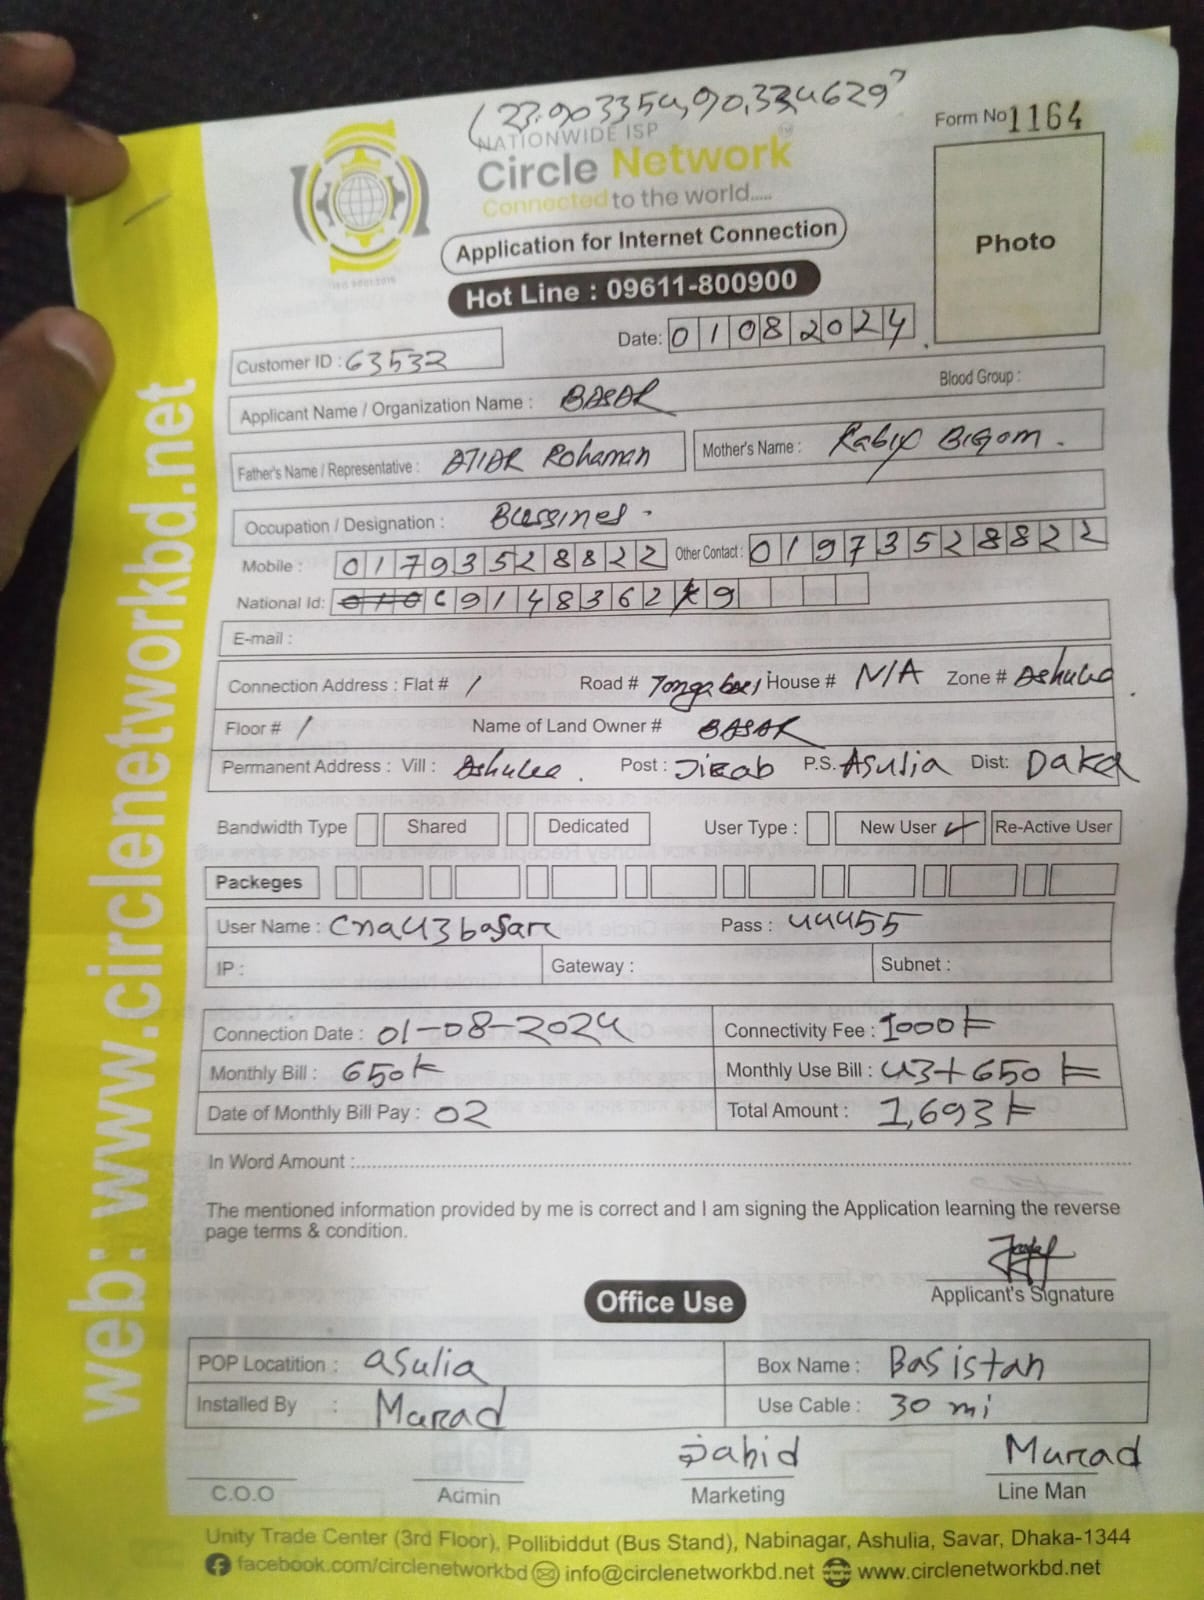 (23.903354,90.334629)
NATIONWIDE ISP
Circle Network
Connected to the world.....
Form No 1164
Photo
Application for Internet Connection
Hot Line : 09611-800900
ISO 9001:2015
Date: 01082024
Customer ID : 63532
Applicant Name / Organization Name : BASAR
Blood Group :
Father's Name / Representative : ATIAR Rohaman
Mother's Name : Rabiya BIGOM.
Occupation / Designation : Bussines.
Mobile : 01793528822 Other Contact : 01973528822
National Id: 6914836289
E-mail :
Connection Address : Flat # / Road # House # N/A Zone # Ashulia
Floor # / Name of Land Owner # BASAR
Permanent Address : Vill : Ashulia. Post : Jirab P.S. Asulia Dist: Daka
Bandwidth Type Shared Dedicated User Type : New User ✓ Re-Active User
Packeges
User Name : cna43basar Pass : 44455
IP : Gateway : Subnet :
Connection Date : 01-08-2024 Connectivity Fee : 1000 ৳
Monthly Bill : 650 ৳ Monthly Use Bill : 43+650 ৳
Date of Monthly Bill Pay : 02 Total Amount : 1,693 ৳
In Word Amount :
The mentioned information provided by me is correct and I am signing the Application learning the reverse
page terms & condition.
Applicant's Signature
Office Use
POP Locatition : asulia Box Name : Basistan
Installed By : Murad Use Cable : 30 mi
Jahid Murad
C.O.O Admin Marketing Line Man
Unity Trade Center (3rd Floor), Pollibiddut (Bus Stand), Nabinagar, Ashulia, Savar, Dhaka-1344
facebook.com/circlenetworkbd info@circlenetworkbd.net www.circlenetworkbd.net
web: www.circlenetworkbd.net